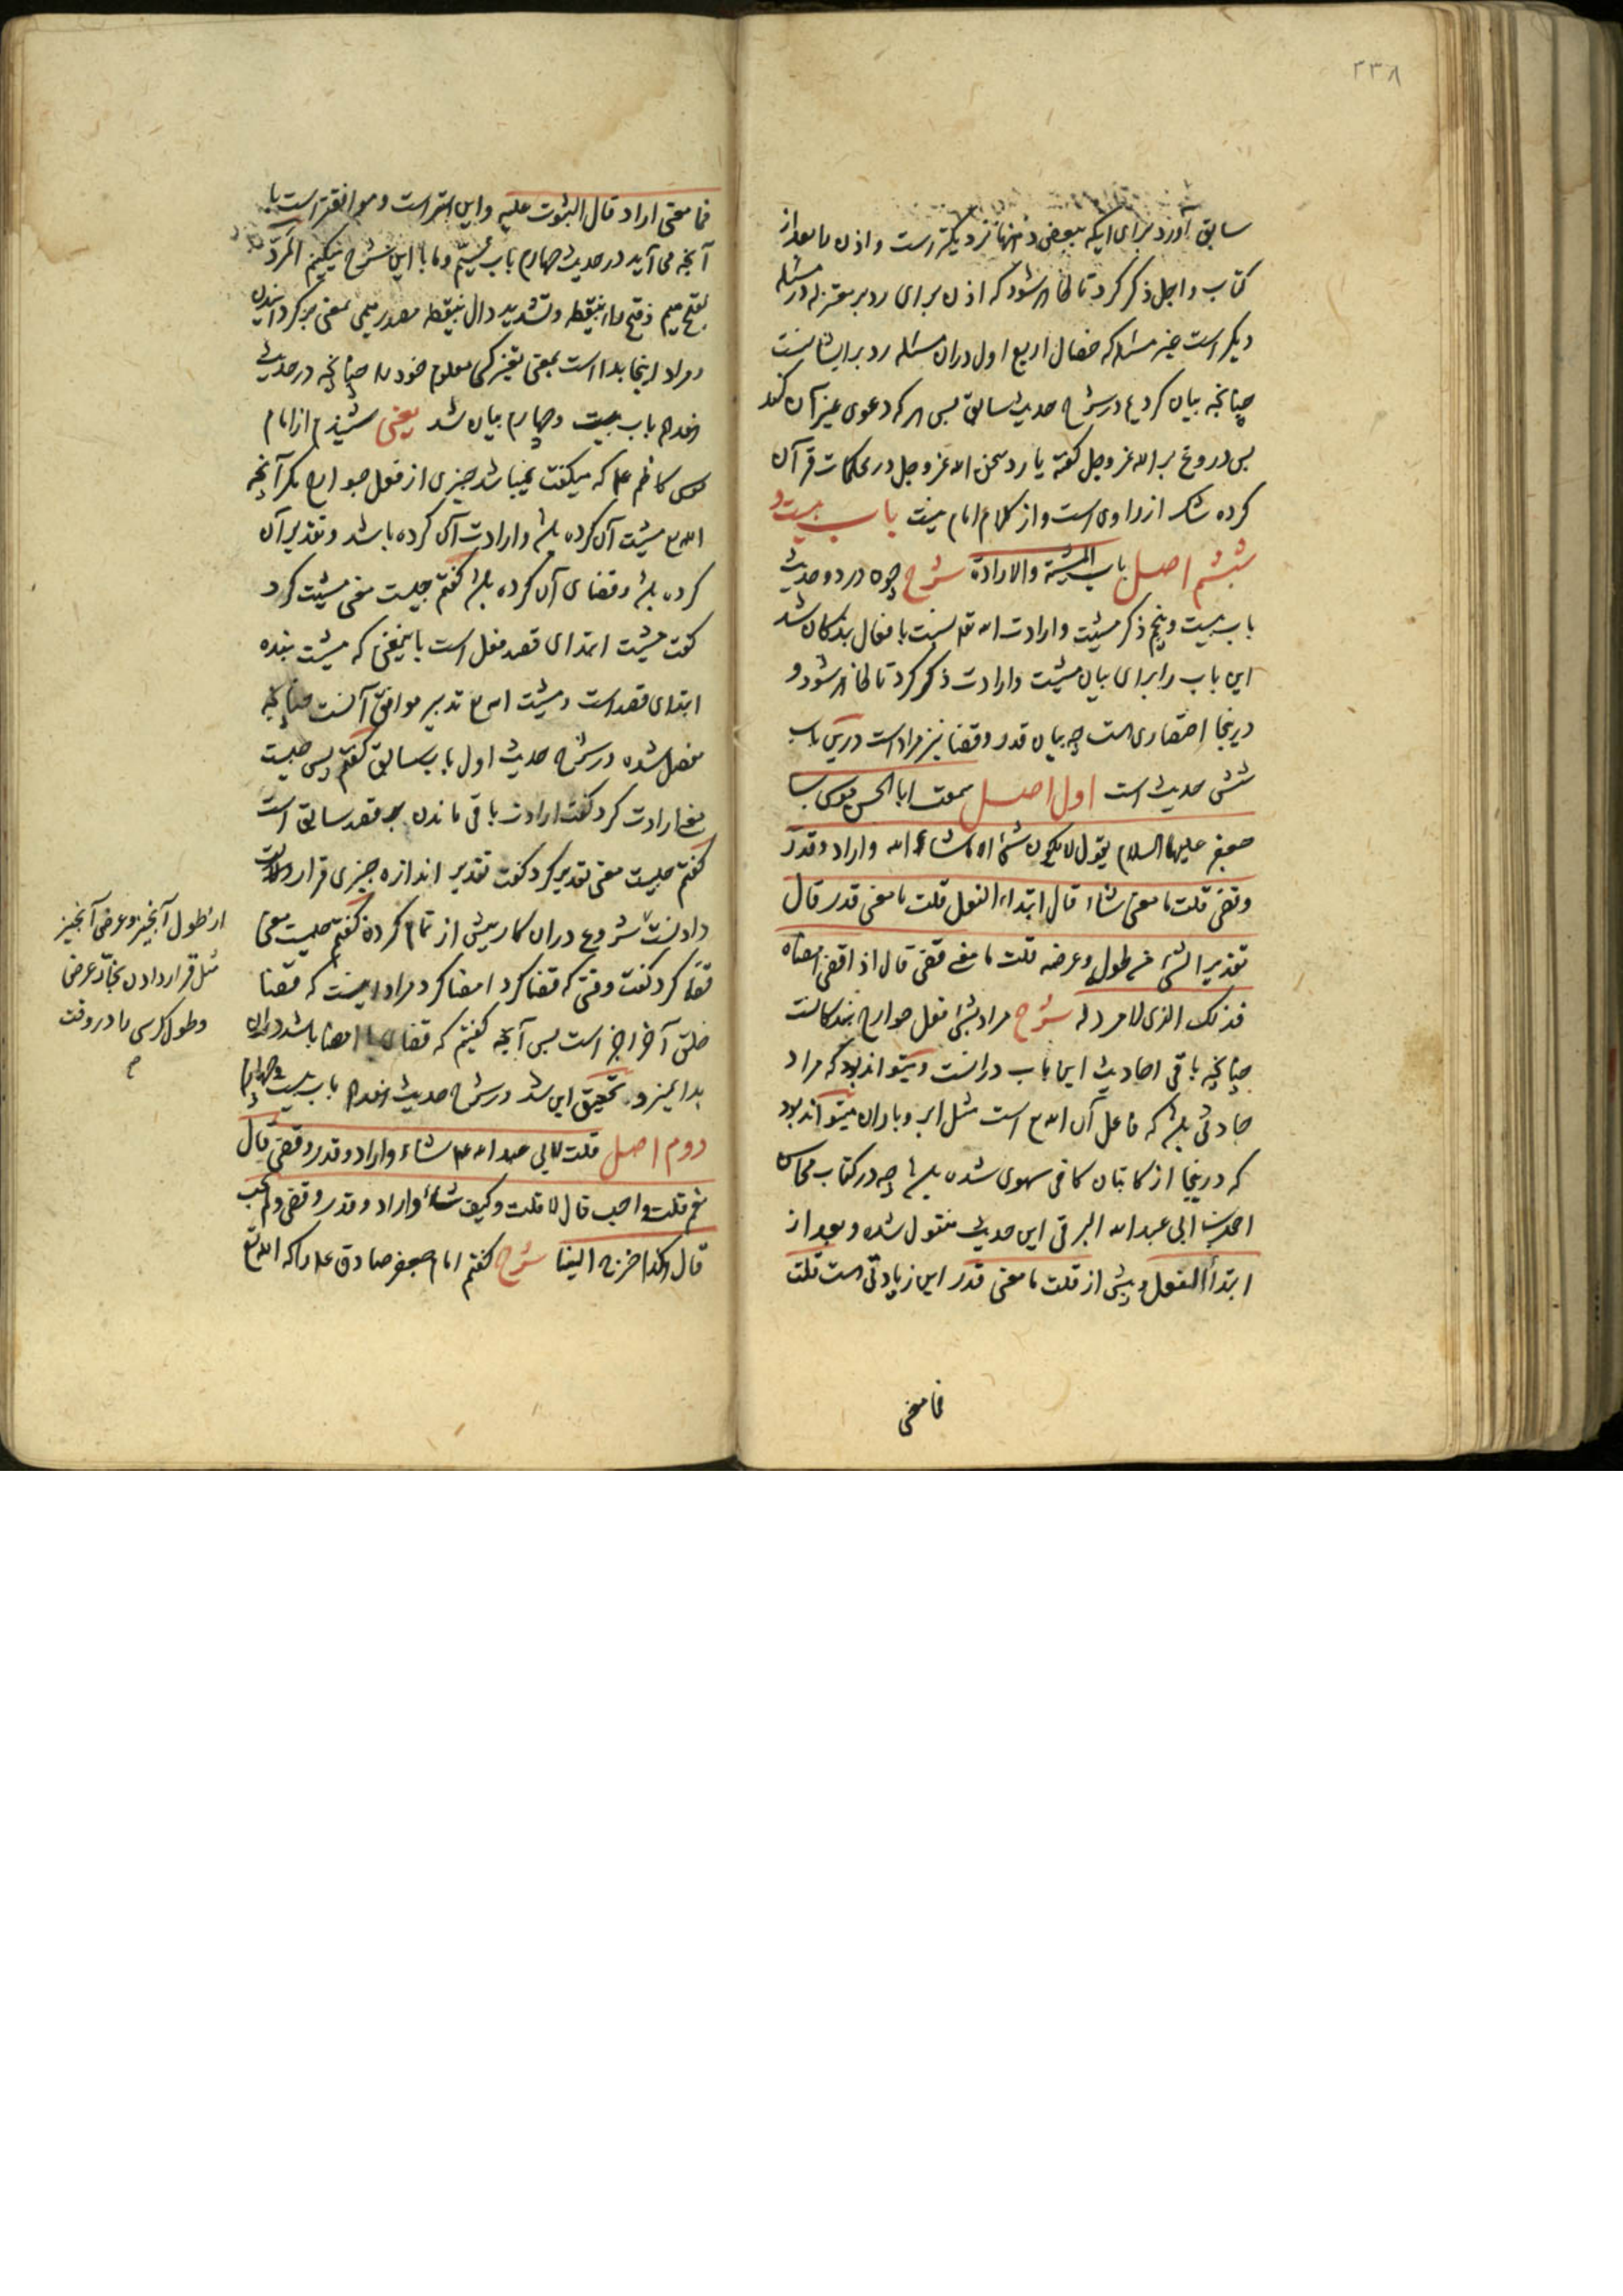 ۳۳۸
سابق آورد برای اینکه ببعض ذهنها نزدیکتر است و اذن را بعد از
کتاب و اجل ذکر کرد تا ظاهر شود که اذن برای رد بر معتزله در مسئله
دیگر است غیر مسئله که خصال اربع اول دران مسئله رد بر ایشانست
چنانچه بیان کردیم در شرح حدیث سابق پس هر که دعوی غیر آن کند
پس دروغ بر الله عز وجل گفته یا رد سخن الله عز وجل در محکمات قرآن
کرده شک از راوی است و از کلام امام نیست باب بیست و
ششم اصل باب المشیئة والارادة شرح چون در دو حدیث
باب بیست و پنجم ذکر مشیت و ارادت الله تعالی نسبت بافعال بندگان شد
این باب را برای بیان مشیت و ارادت ذکر کرد تا ظاهر شود و
درینجا اختصاری است چه بیان قدر و قضا نیز مراد است درین باب
شش حدیث است اول اصل سمعت ابا الحسن موسی بن
جعفر علیهما السلام یقول لا یکون شئ الا ما شاء الله و اراد و قدر
و قضی قلت ما معنی شاء قال ابتداء الفعل قلت ما معنی قدر قال
تقدیر الشئ من طوله و عرضه قلت ما معنی قضی قال اذا قضی امضاه
فذلک الذی لا مرد له شرح مراد بشئ فعل جوارح بندگانست
چنانچه باقی احادیث این باب درانست و میتواند بود که مراد
حادثی باشد که فاعل آن الله ع است مثل ابر و باران میتواند بود
که درینجا از کاتبان کافی سهوی شده باشد چه در کتاب محاسن
احمد بن ابی عبد الله البرقی این حدیث منقول شده و بعد از
ابتداء الفعل و پیش از قلت ما معنی قدر این زیادتی است قلت
فما معنی
فما معنی اراد قال الثبوت علیه و این بهتر است و موافقتر است با
آنچه می آید در حدیث چهارم باب سیم و ما با این شرح میکنیم المرد
بفتح میم و فتح راء بنقطه و تشدید دال بنقطه مصدر میمی بمعنی برگردانیدن
و مراد اینجا بدا است بمعنی تغییر کسی معلوم خود را چنانچه در حدیث
هفدهم باب بیست و چهارم بیان شد یعنی شنیدم از امام
موسی کاظم علیه که میگفت نمیباشد چیزی از فعل جوارح مگر آنچه
الله ع مشیت آن کرده باشد و ارادت آن کرده باشد و تقدیر آن
کرده باشد و قضای آن کرده باشد گفتم چیست معنی مشیت کرد
گفت مشیت ابتدای قصد فعل است باینمعنی که مشیت بنده
ابتدای قصد است و مشیت الله ع تدبیر موافق آنست چنانچه
مفصل شده در شرح حدیث اول باب سابق گفتم پس چیست
معنی ارادت کرد گفت ارادت باقی ماندن بر قصد سابق است
گفتم چیست معنی تقدیر کرد گفت تقدیر اندازه چیزی قرار
دادنست شروع دران کار پیش از تمام کردن گفتم چیست معنی
قضا کرد گفت وقتی که قضا کرد امضا کرد مراد اینست که قضا
خلق آخر اجزا است پس آنچه گفتیم که قضای با امضا باشد دران
بدا نمیرود تحقیق این شد در شرح حدیث هفدهم باب بیست و چهارم
دوم اصل قلت لابی عبد الله علیه شاء و اراد و قدر و قضی قال
نعم قلت و احب قال لا قلت و کیف شاء و اراد و قدر و قضی و لم یحب
قال هکذا خرج الینا شرح گفتم امام جعفر صادق علیه را که الله تع
از طول آنچیز و عرض آنچیز
مثل قرار دادن نجار عرض
و طول کرسی را در وقت